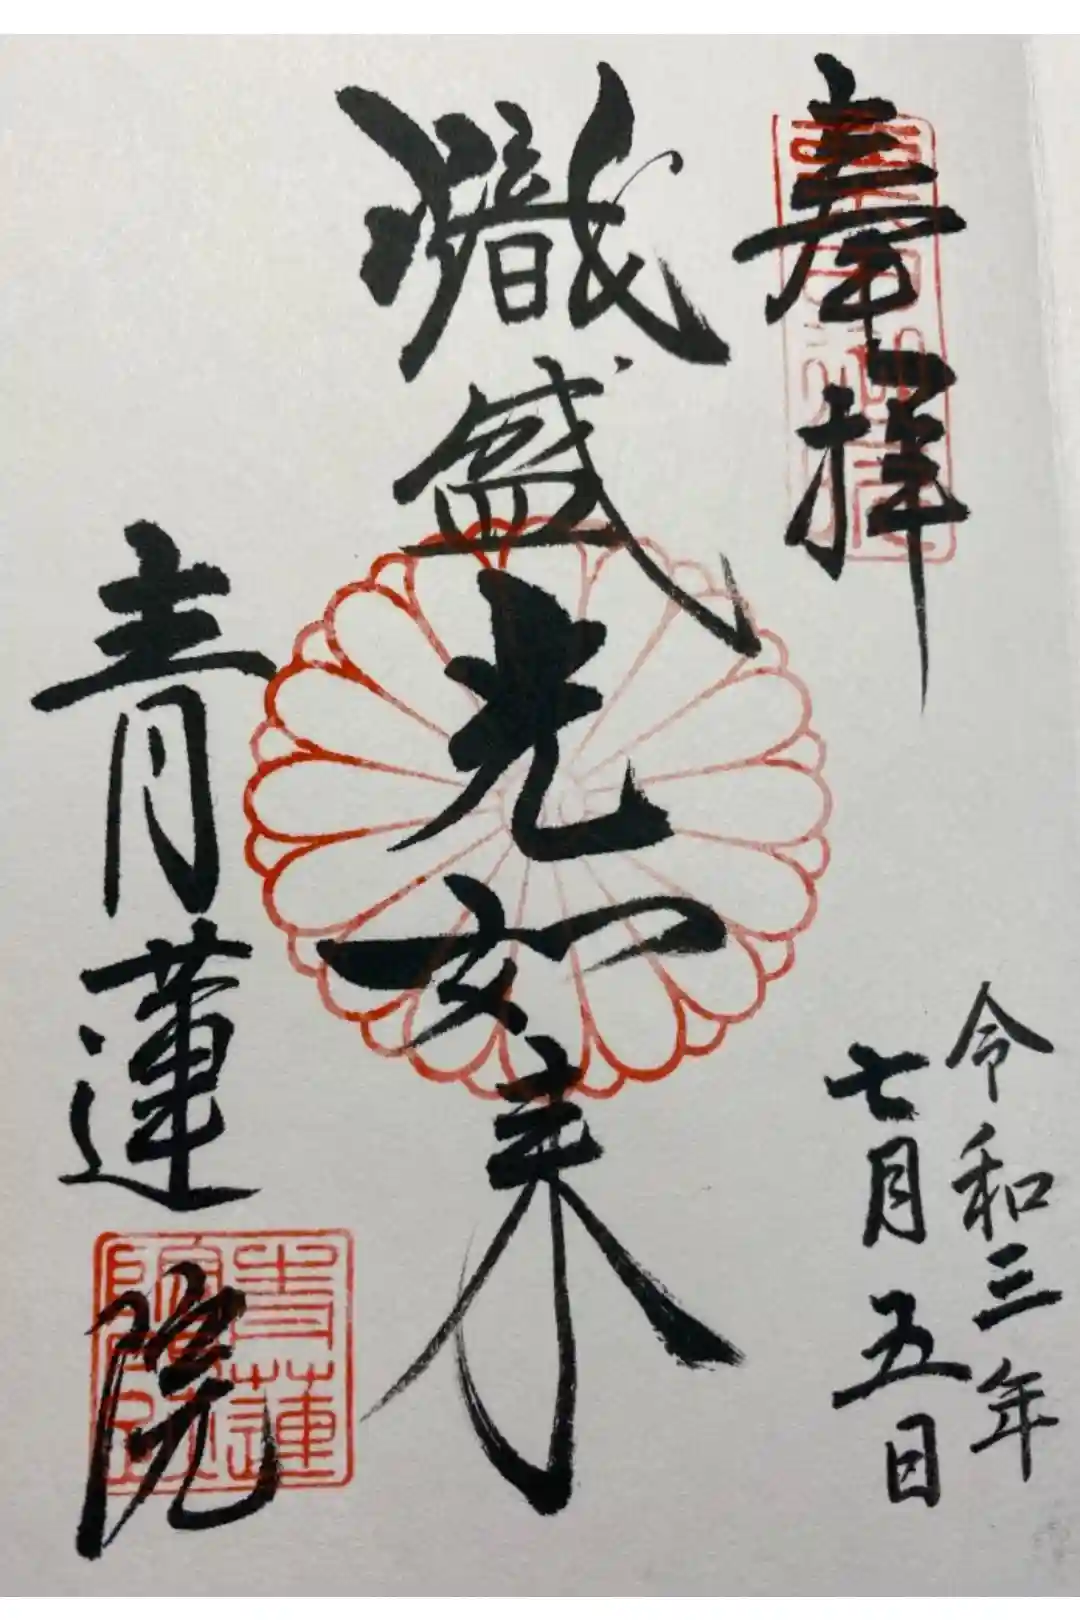 奉拝
令和三年
七月五日
熾盛光如来
青蓮院